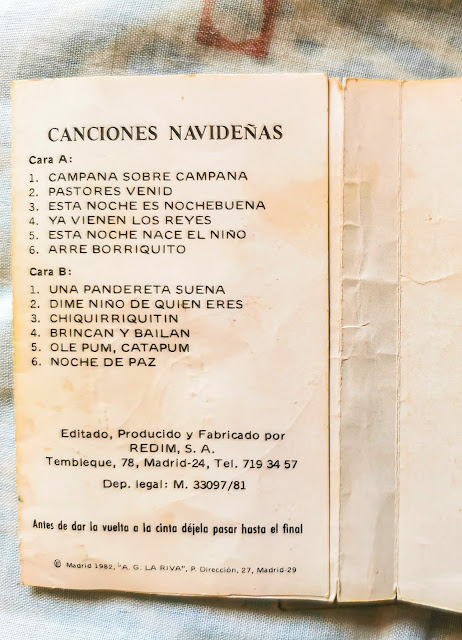 CANCIONES NAVIDEÑAS
Cara A:
1. CAMPANA SOBRE CAMPANA
2. PASTORES VENID
3. ESTA NOCHE ES NOCHEBUENA
4. YA VIENEN LOS REYES
5. ESTA NOCHE NACE EL NIÑO
6. ARRE BORRIQUITO
Cara B:
1. UNA PANDERETA SUENA
2. DIME NIÑO DE QUIEN ERES
3. CHIQUIRRIQUITIN
4. BRINCAN Y BAILAN
5. OLE PUM, CATAPUM
6. NOCHE DE PAZ
Editado, Producido y Fabricado por
REDIM, S. A.
Tembleque, 78, Madrid-24, Tel. 719 34 57
Dep. legal: M. 33097/81
Antes de dar la vuelta a la cinta déjela pasar hasta el final
© Madrid 1982, "A. G. LA RIVA", P. Dirección, 27, Madrid-29